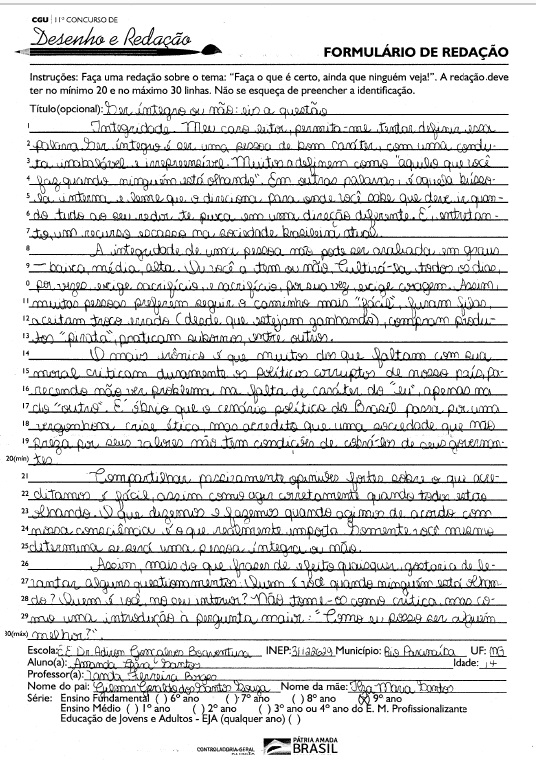 CGU | 11º CONCURSO DE
Desenho e Redação
FORMULÁRIO DE REDAÇÃO
Instruções: Faça uma redação sobre o tema: "Faça o que é certo, ainda que ninguém veja!". A redação deve
ter no mínimo 20 e no máximo 30 linhas. Não se esqueça de preencher a identificação.
Título(opcional): Ser íntegro ou não: eis a questão
1 Integridade. Meu caro leitor, permita-me tentar definir essa
2 palavra. Ser íntegro é ser uma pessoa de bom caráter, com uma condu-
3 ta inabalável e irrepreensível. Muitos a definem como "aquilo que você
4 faz quando ninguém está olhando". Em outras palavras, é aquela bússo-
5 la interna e leme que o direciona para onde você sabe que deve ir quan-
6 do tudo ao seu redor te puxa em uma direção diferente. É, entretan-
7 to, um recurso escasso na sociedade brasileira atual.
8 A integridade de uma pessoa não pode ser avaliada em graus
9 — baixa, média, alta. Ou você a tem ou não. Cultivá-la todos os dias,
0 por vezes, exige sacrifício, e sacrifício, por sua vez, exige coragem. Assim,
11 muitas pessoas preferem seguir o caminho mais "fácil", furam filas,
12 aceitam troco errado (desde que estejam ganhando), compram produ-
13 tos "pirata", praticam subornos, entre outros.
14 O mais irônico é que muitos dos que faltam com sua
15 moral criticam duramente os políticos corruptos de nosso país, pa-
16 recendo não ver problema na falta de caráter do "eu", apenas na
17 do "outro". É óbvio que o cenário político do Brasil passa por uma
18 vergonhosa crise ética, mas acredito que uma sociedade que não
19 preza por seus valores não tem condições de cobrá-los de seus governan-
20(min) tes.
21 Compartilhar passivamente opiniões fortes sobre o que acre-
22 ditamos é fácil, assim como agir corretamente quando todos estão
23 olhando. O que dizemos e fazemos quando agimos de acordo com
24 nossa consciência é o que realmente importa. Somente você mesmo
25 determina se será uma pessoa íntegra ou não.
26 Assim, mais do que frases de efeito quaisquer, gostaria de le-
27 vantar alguns questionamentos: Quem é você quando ninguém está olhan-
28 do? Quem é você, no seu interior? Não tome-os como crítica, mas co-
29 mo uma introdução à pergunta maior: "Como eu posso ser alguém
30(máx) melhor?".
Escola: E.E. Dr. Adiron Gonçalves Boaventura INEP: 31122629 Município: Rio Paranaíba UF: MG
Aluno(a): Amanda Santos Idade: 14
Professor(a): Vanda Ferreira Borges
Nome do pai: Gilmar Geraldo dos Santos Souza Nome da mãe: Ilza Maria Santos
Série: Ensino Fundamental ( ) 6º ano ( ) 7º ano ( ) 8º ano (X) 9º ano
Ensino Médio ( ) 1º ano ( ) 2º ano ( ) 3º ano ou 4º ano do E. M. Profissionalizante
Educação de Jovens e Adultos - EJA (qualquer ano) ( )
CONTROLADORIA-GERAL
DA UNIÃO
PÁTRIA AMADA
BRASIL